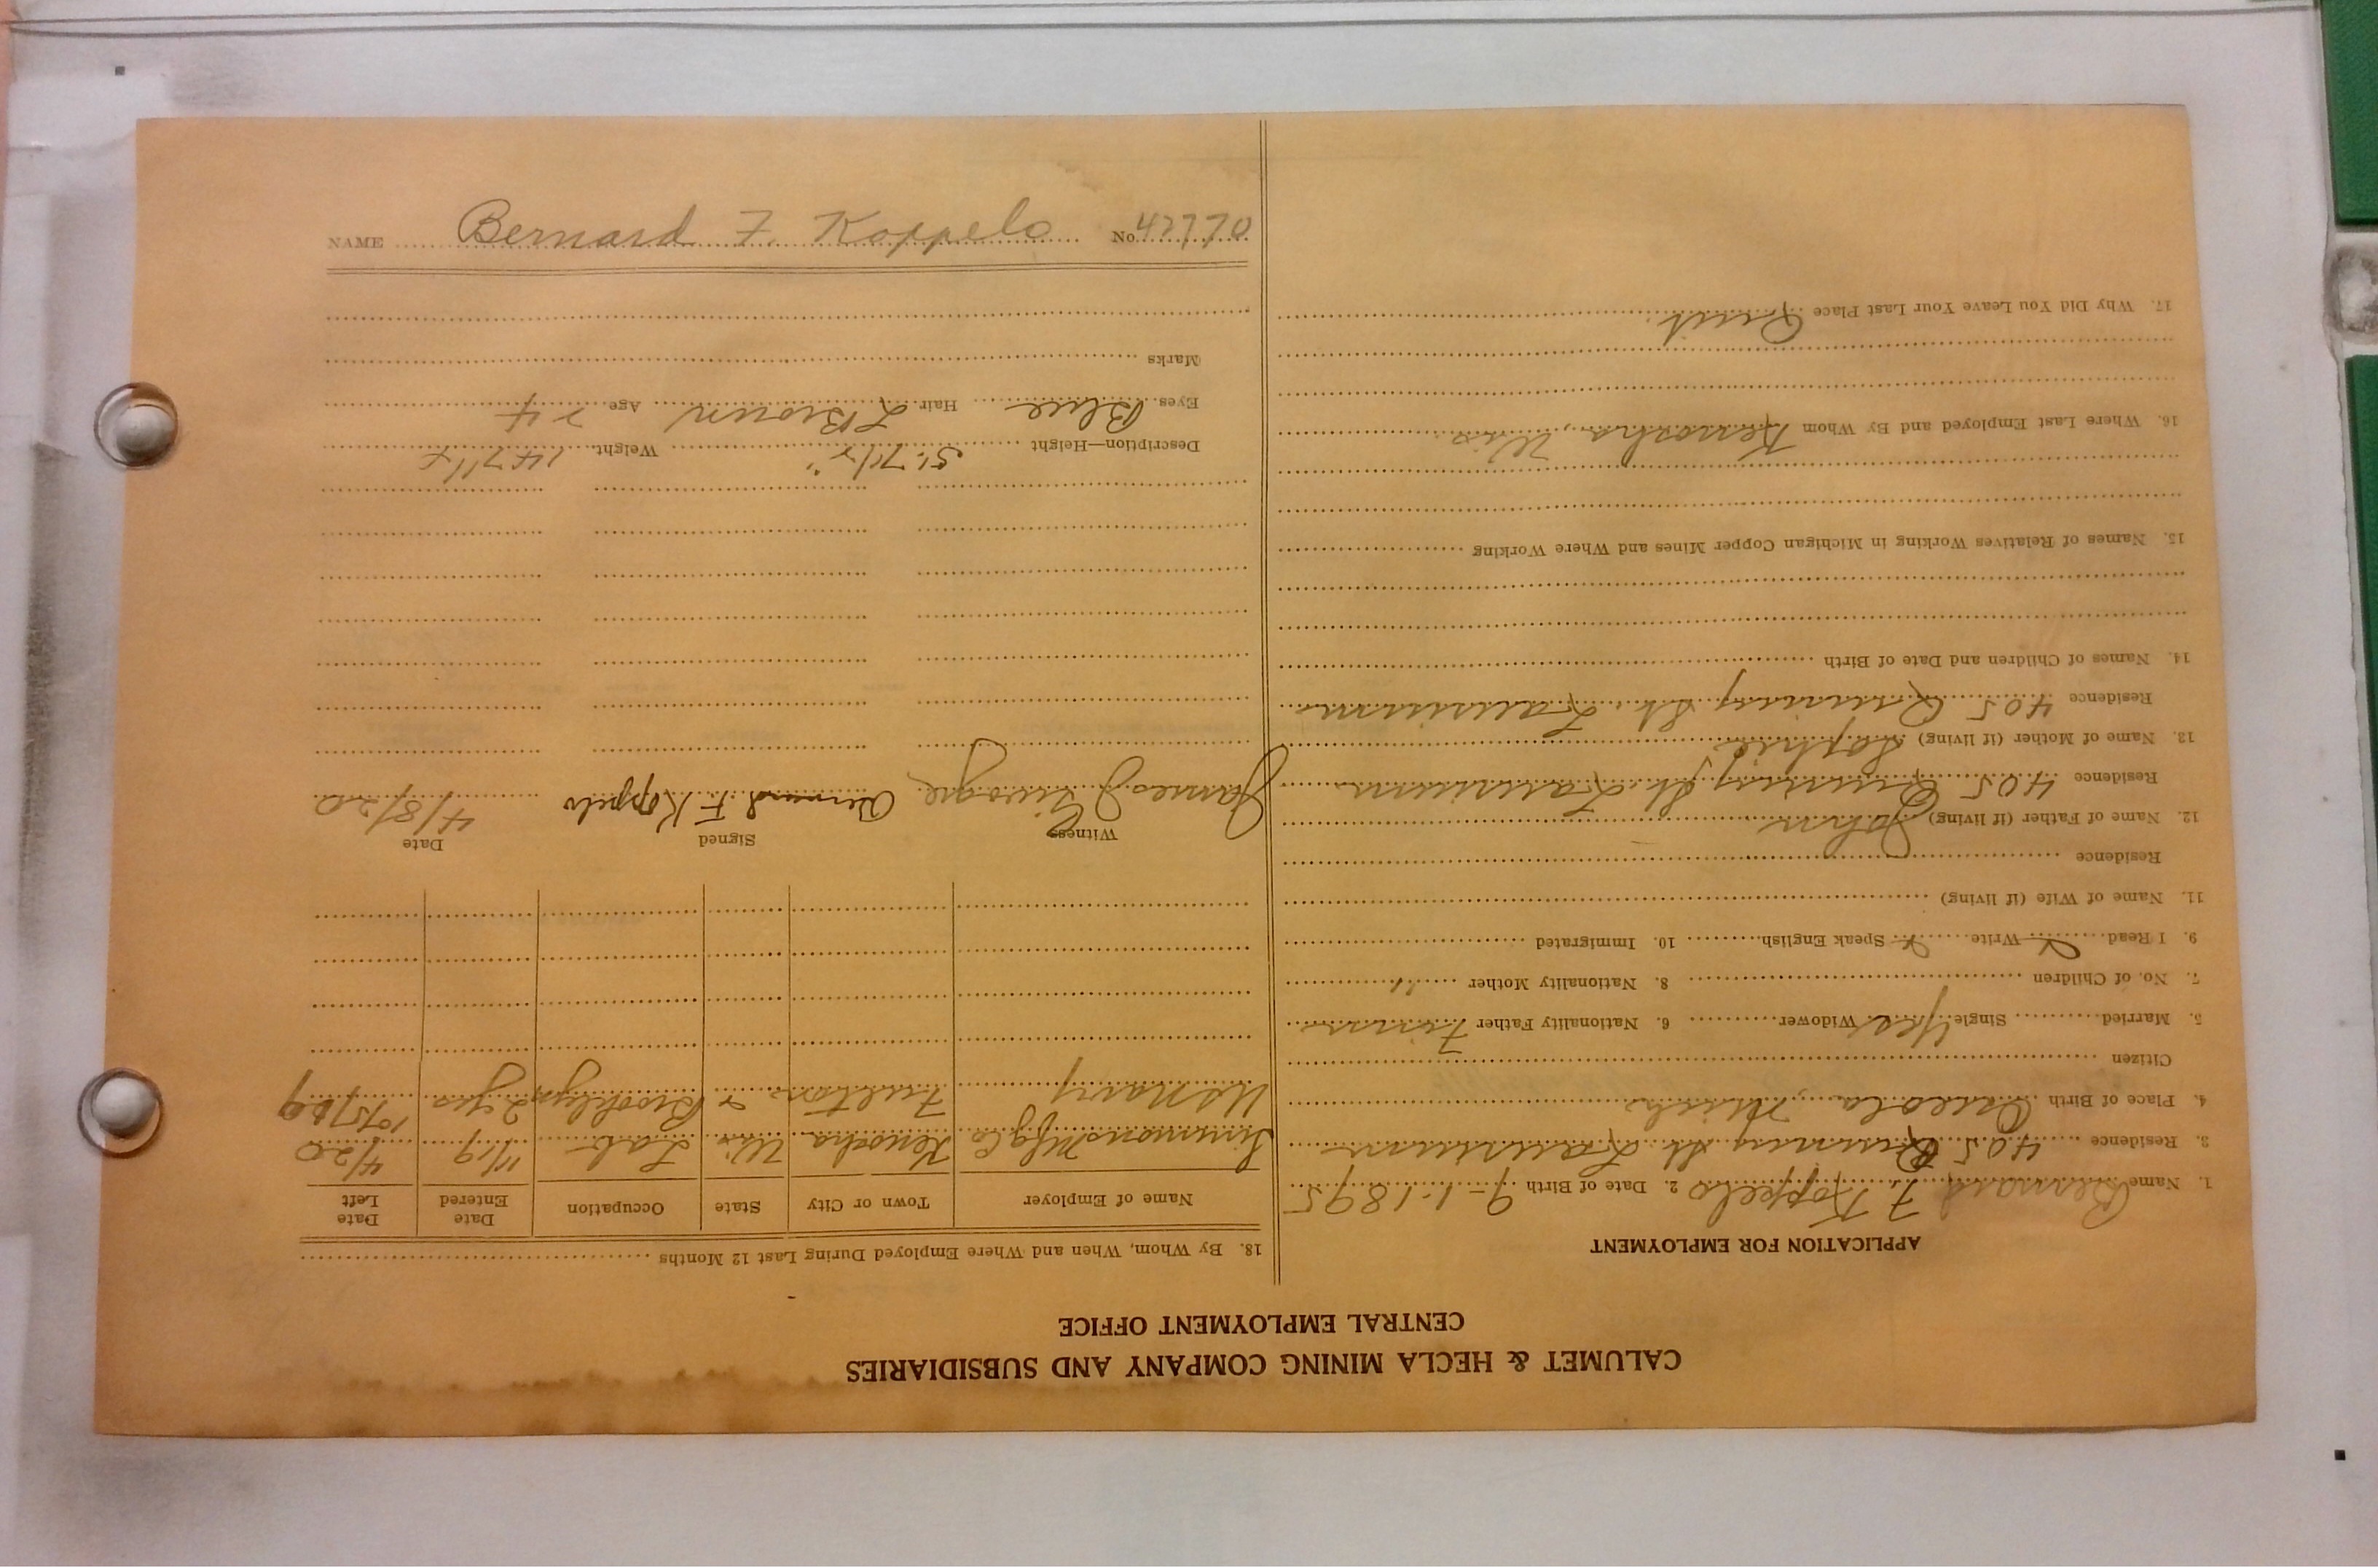 CALUMET & HECLA MINING COMPANY AND SUBSIDIARIES
CENTRAL EMPLOYMENT OFFICE
APPLICATION FOR EMPLOYMENT
1. Name Bernard F. Koppelo 2. Date of Birth 9-1-1895
3. Residence 405 Quincy St. Laurium
4. Place of Birth Osceola, Mich
Citizen
5. Married Single Yes Widower 6. Nationality Father Finn
7. No. of Children 8. Nationality Mother "
9. I Read Write Speak English 10. Immigrated
11. Name of Wife (if living)
Residence
12. Name of Father (if living) John
Residence 405 Quincy St. Laurium
13. Name of Mother (if living) Sophia
Residence 405 Quincy St. Laurium
14. Names of Children and Date of Birth
15. Names of Relatives Working in Michigan Copper Mines and Where Working
16. Where Last Employed and By Whom Kenosha, Wis.
17. Why Did You Leave Your Last Place Quit.
18. By Whom, When and Where Employed During Last 12 Months
Name of Employer Town or City State Occupation Date Entered Date Left
Simmons Mfg Co Kenosha Wis Lab 11/19 4/20
US Navy Fulton Brooklyn 2 yrs
Witness Signed Date
James J Bernard F. Koppelo 4/8/20
Description—Height 5' 7 1/2" Weight 147 1/2
Eyes Blue Hair L Brown Age 24
Marks
NAME Bernard F. Koppelo No. 42770